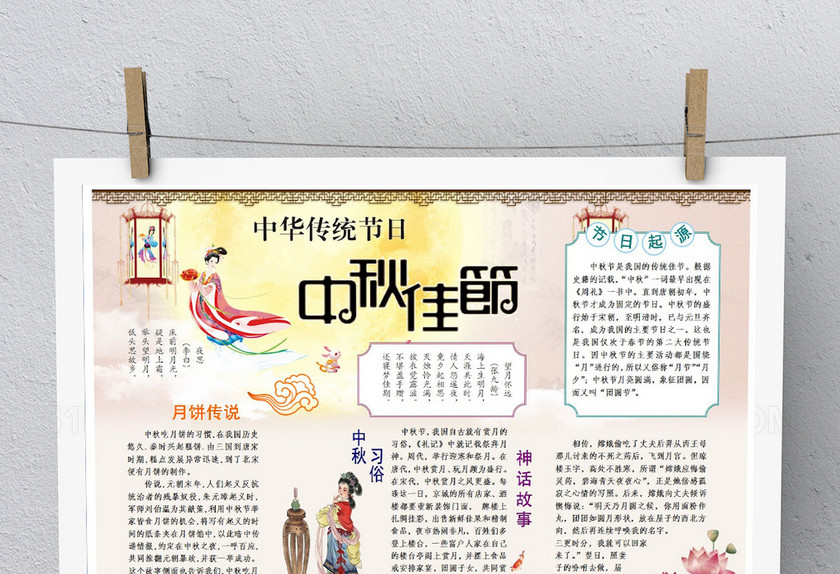 中华传统节日
中秋佳節
节日起源
中秋节是我国的传统佳节。根据
史籍的记载，“中秋”一词最早出现在
《周礼》一书中。直到唐朝初年，中
秋节才成为固定的节日。中秋节的盛
行始于宋朝，至明清时，已与元旦齐
名，成为我国的主要节日之一。这也
是我国仅次于春节的第二大传统节
日。因中秋节的主要活动都是围绕
“月”进行的，所以又俗称“月节”“月
夕”；中秋节月亮圆满，象征团圆，因
而又叫“团圆节”。
夜思
（李白）
床前明月光，
疑是地上霜。
举头望明月，
低头思故乡。
望月怀远
（张九龄）
海上生明月，
天涯共此时。
情人怨遥夜，
竟夕起相思。
灭烛怜光满，
披衣觉露滋。
不堪盈手赠，
还寝梦佳期。
月饼传说
中秋吃月饼的习惯，在我国历史
悠久，秦时兴起糕饼，由三国到唐宋
时期，糕点发展异常迅速，到了北宋
便有月饼的制作。
传说，元朝末年，人们起义反抗
统治者的残暴奴役，朱元璋起义时，
军师刘伯温为其献策，利用中秋节举
家皆食月饼的机会，将写有起义的时
间的纸条夹在月饼馅中，以此暗中传
递情报，约定在中秋之夜，一呼百应，
共同推翻元朝暴政，并获一举成功。
这个故事侧面也告诉我们，中秋吃月
中秋
习俗
中秋节，我国自古就有赏月的
习俗，《礼记》中就记载祭拜月
神。周代，举行迎寒和祭月。在
唐代，中秋赏月、玩月颇为盛行。
在宋代，中秋赏月之风更盛。每
逢这一日，京城的所有店家、酒
楼都要重新装饰门面， 牌楼上
扎绸挂彩，出售新鲜佳果和精制
食品，夜市热闹非凡，百姓们多
登上楼台，一些富户人家在自己
的楼台亭阁上赏月，并摆上食品
或安排家宴，团圆子女，共同赏
神话故事
相传，嫦娥偷吃了丈夫后羿从西王母
那儿讨来的不死之药后，飞到月宫。但琼
楼玉宇，高处不胜寒，所谓“嫦娥应悔偷
灵药，碧海青天夜夜心”，正是她倍感孤
寂之心情的写照。后来，嫦娥向丈夫倾诉
懊悔说：“明天乃月圆之候，你用面粉作
丸，团团如圆月形状，放在屋子的西北方
向，然后再连续呼唤我的名字。
三更时分，我就可以回家
来了。”翌日，照妻
子的吩咐去做，届